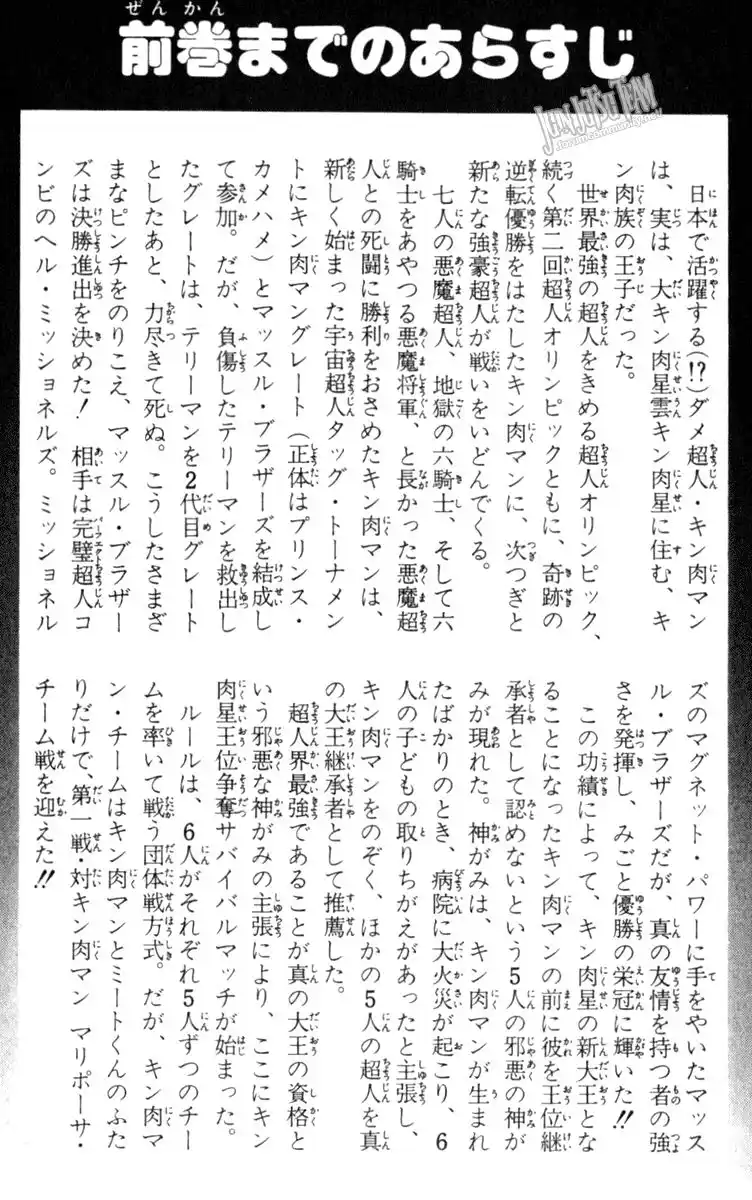 前巻までのあらすじ
日本で活躍する(!?)ダメ超人・キン肉マン
は、実は、大キン肉星雲キン肉星に住む、キ
ン肉族の王子だった。
世界最強の超人をきめる超人オリンピック、
続く第二回超人オリンピックともに、奇跡の
逆転優勝をはたしたキン肉マンに、次つぎと
新たな強豪超人が戦いをいどんでくる。
七人の悪魔超人、地獄の六騎士、そして六
騎士をあやつる悪魔将軍、と長かった悪魔超
人との死闘に勝利をおさめたキン肉マンは、
新しく始まった宇宙超人タッグ・トーナメン
トにキン肉マングレート(正体はプリンス・
カメハメ)とマッスル・ブラザーズを結成し
て参加。だが、負傷したテリーマンを救出し
たグレートは、テリーマンを2代目グレート
としたあと、力尽きて死ぬ。こうしたさまざ
まなピンチをのりこえ、マッスル・ブラザー
ズは決勝進出を決めた! 相手は完璧超人コ
ンビのヘル・ミッショネルズ。ミッショネル
ズのマグネット・パワーに手をやいたマッス
ル・ブラザーズだが、真の友情を持つ者の強
さを発揮し、みごと優勝の栄冠に輝いた!!
この功績によって、キン肉星の新大王とな
ることになったキン肉マンの前に彼を王位継
承者として認めないという5人の邪悪の神が
みが現れた。神がみは、キン肉マンが生まれ
たばかりのとき、病院に大火災が起こり、6
人の子どもの取りちがえがあったと主張し、
キン肉マンをのぞく、ほかの5人の超人を真
の大王継承者として推薦した。
超人界最強であることが真の大王の資格と
いう邪悪な神がみの主張により、ここにキン
肉星王位争奪サバイバルマッチが始まった。
ルールは、6人がそれぞれ5人ずつのチー
ムを率いて戦う団体戦方式。だが、キン肉マ
ン・チームはキン肉マンとミートくんのふた
りだけで、第一戦・対キン肉マン マリポーサ・
チーム戦を迎えた!!
JENJUTSU TEAM
.forumcommunity.net/